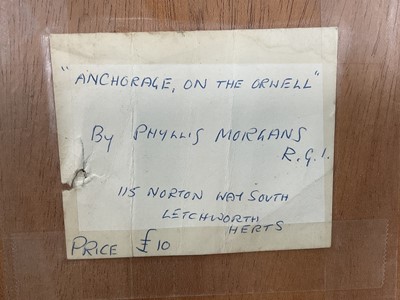 "ANCHORAGE, ON THE ORWELL"
By PHYLLIS MORGANS
R.G.I.
115 NORTON WAY SOUTH
LETCHWORTH
HERTS
PRICE £10